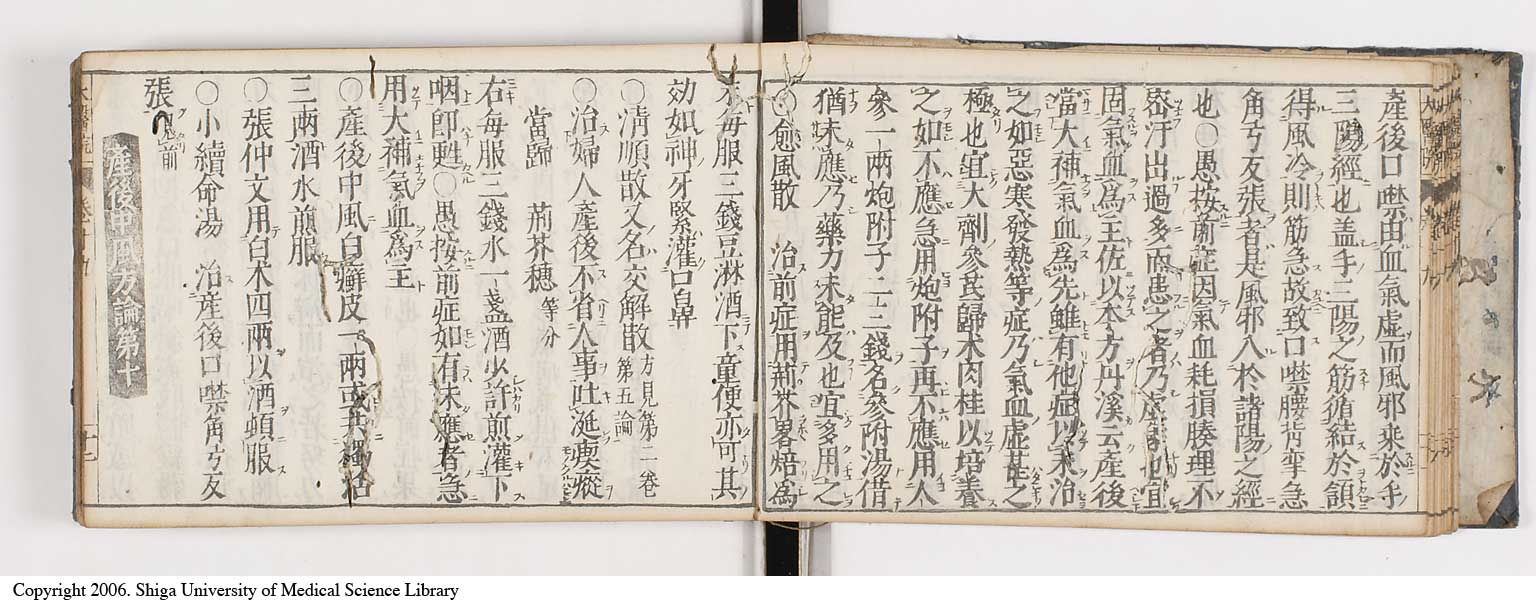 產後口噤由血氣虛而風邪乘於手
三陽經也盖手三陽之筋循結於頷
得風冷則筋急故致口噤腰背攣急
角弓反張者是風邪入於諸陽之經
也○愚按前症因氣血耗損腠理不
宻汗出過多而患之者乃虛也宜
固氣血為主佐以本方丹溪云產後
當大補氣血為先雖有他症以末治
之如惡寒發熱等症乃氣血虛甚之
極也宜大劑參芪歸术肉桂以培養
之如不應急用炮附子再不應用人
參一兩炮附子二三錢名參附湯借
猶未應乃藥力未能及也宜多用之
○愈風散 治前症用荊芥畧焙為
末每服三錢豆淋酒下童便亦可其
効如神牙緊灌口鼻
○清順散又名交解散方見第二卷第五論
○治婦人產後不省人事吐涎瘈瘲
當歸 荊芥穂等分
右每服三錢水一盞酒少許煎灌下
咽即甦○愚按前症如有未應者急
用大補氣血為主
○產後中風白癬皮一兩或共獨活
三兩酒水煎服
○張仲文用白术四兩以酒頓服
○小續命湯 治產後口噤角弓反
張 前
產後中風方論第十
Copyright 2006. Shiga University of Medical Science Library